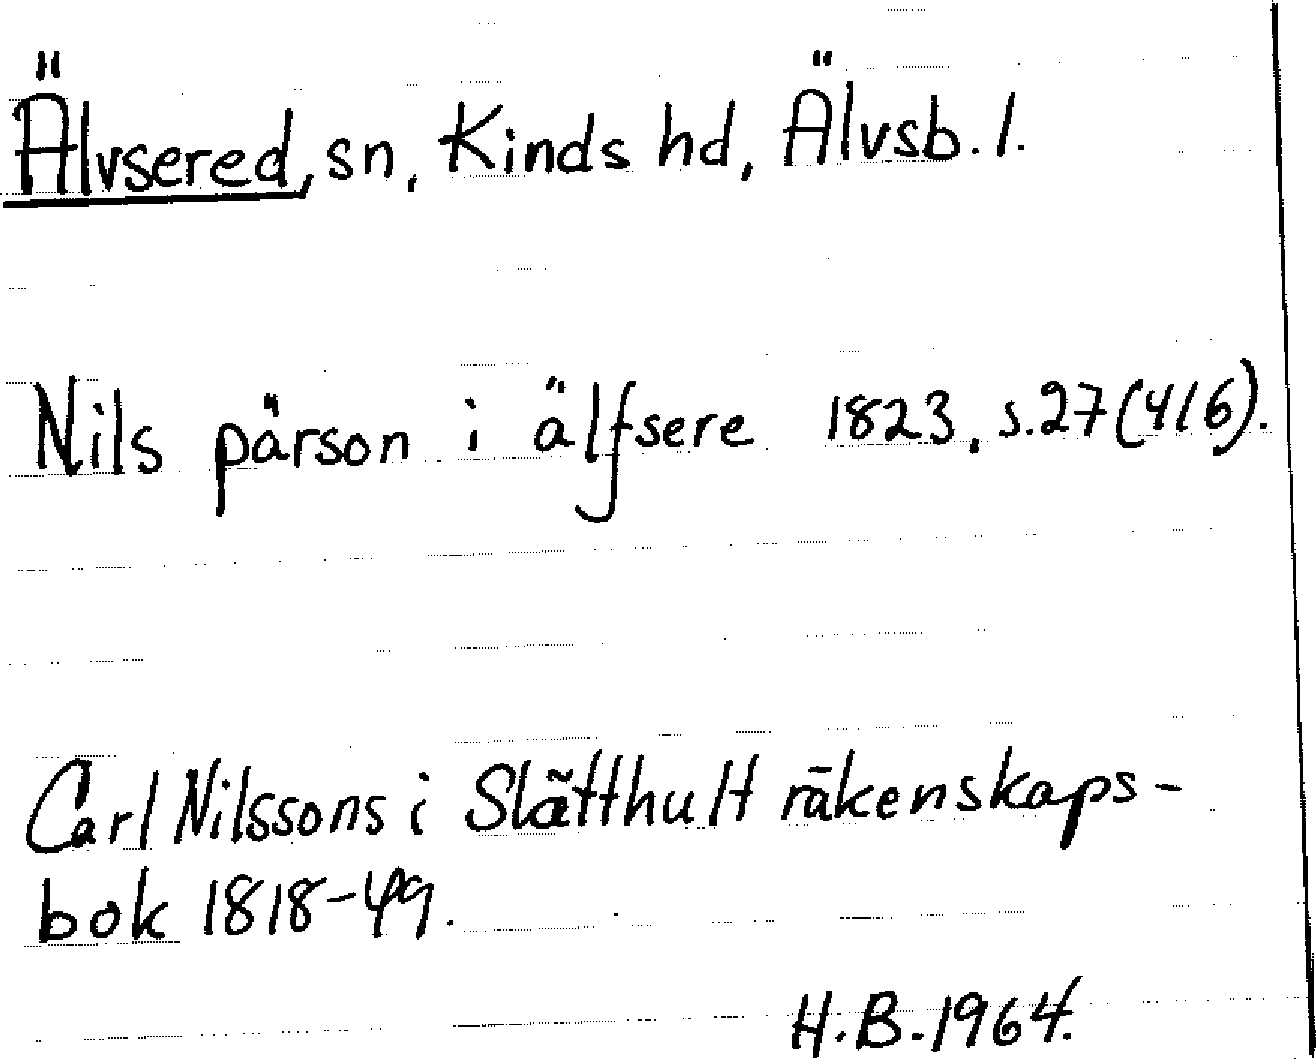 Älvsered, sn, Kinds hd, Älvsb. l.
Nils pärson i älfsere 1823, s.27 (4/6).
Carl Nilssons i Slätthult räkenskaps-
bok 1818-49.
H.B. 1964.